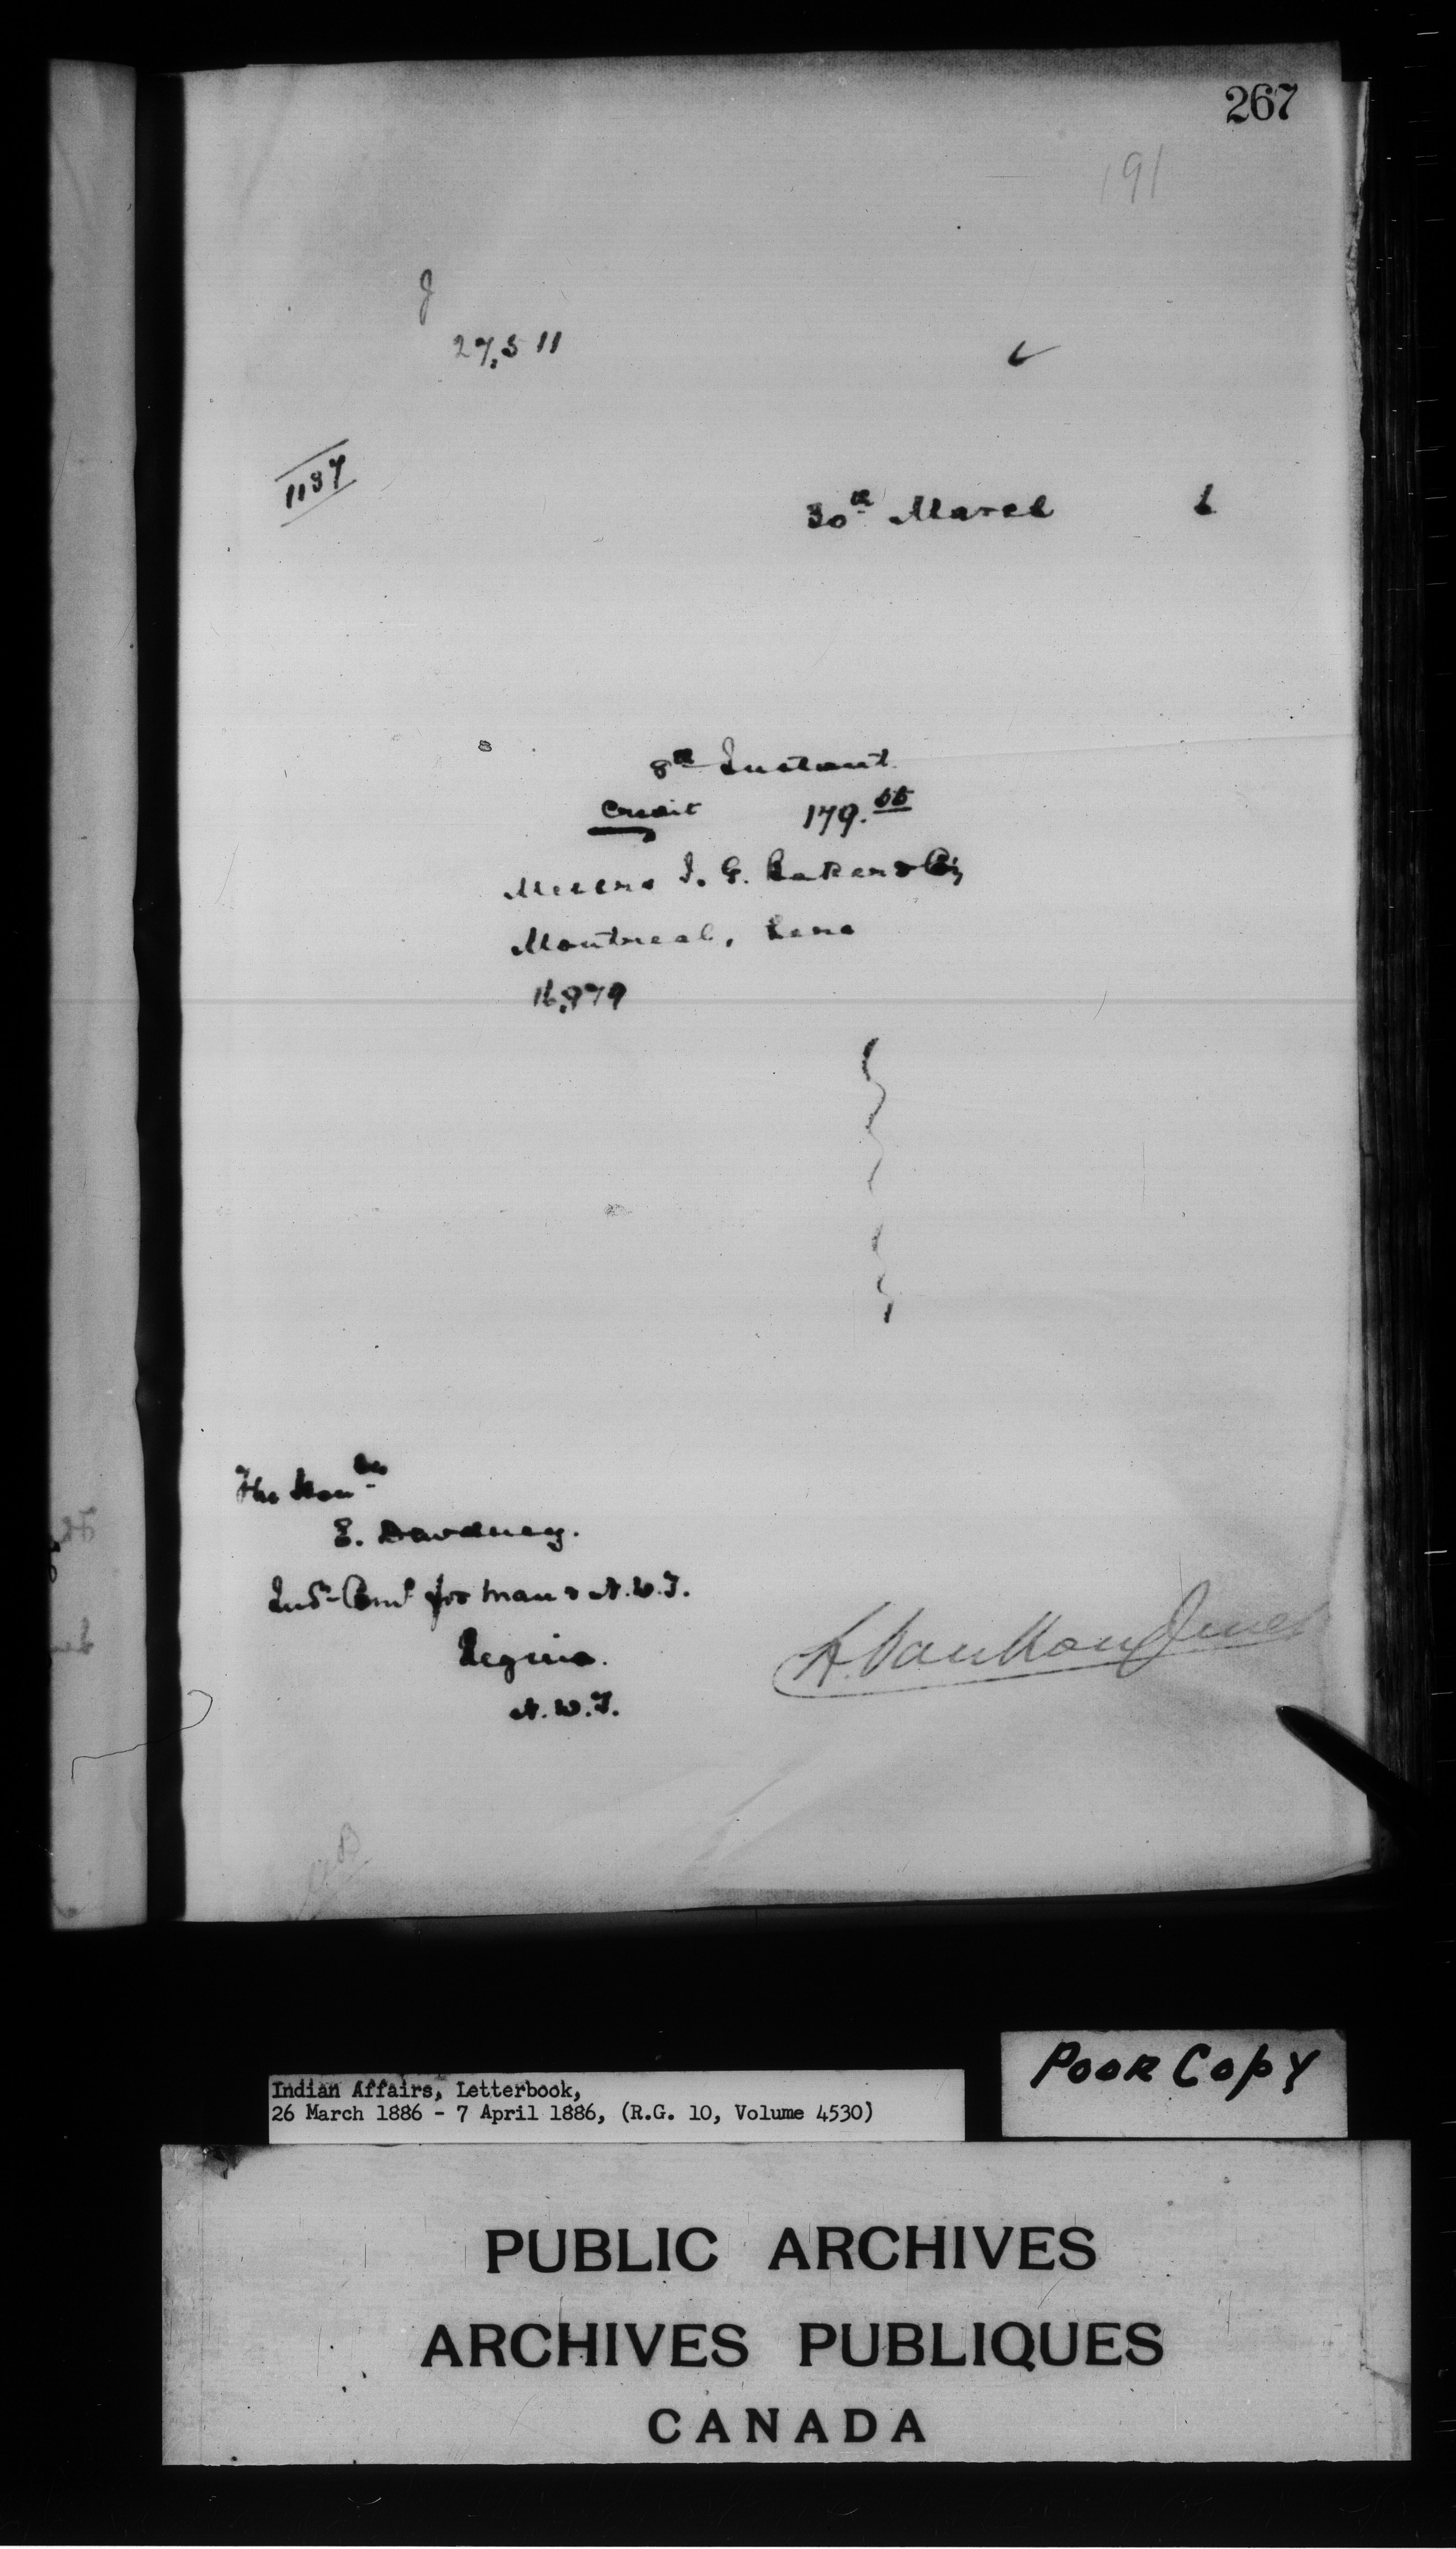 267
191
J
27,511
1137
30th March 6
8th Instant
Credit 179.56
Messrs I. G. Baker & Co,
Montreal, Lena
16,979
The Honble
E. Dewdney.
Ind. Comr for Man & N.W.T.
Regina.
N.W.T.
L. VanKoughnet
Indian Affairs, Letterbook,
26 March 1886 - 7 April 1886, (R.G. 10, Volume 4530)
POOR COPY
PUBLIC ARCHIVES
ARCHIVES PUBLIQUES
CANADA